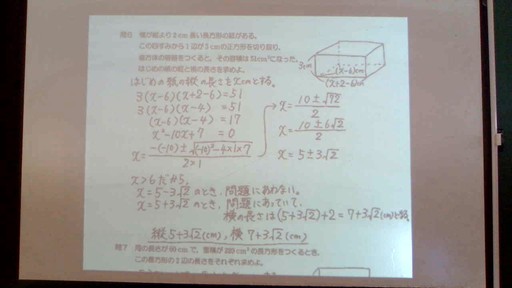 問6 横が縦より2cm長い長方形の紙がある。
この四すみから1辺が3cmの正方形を切り取り、
直方体の容器をつくると、その容積は51cm³になった。
はじめの紙の縦と横の長さを求めよ。
3cm
(x-6)cm
(x+2-6)cm
はじめの紙の縦の長さをxcmとする。
3(x-6)(x+2-6)=51
3(x-6)(x-4)=51
(x-6)(x-4)=17
x²-10x+7=0
x=-(-10)±√(-10)²-4×1×7/2×1
x=10±√72/2
x=10±6√2/2
x=5±3√2
x>6だから、
x=5-3√2のとき、問題にあわない。
x=5+3√2のとき、問題にあっていて、
横の長さは(5+3√2)+2=7+3√2(cm)となる
縦5+3√2(cm), 横7+3√2(cm)
問7 周の長さが60cmで、面積が200cm²の長方形をつくるとき、
この長方形の2辺の長さをそれぞれ求めよ。